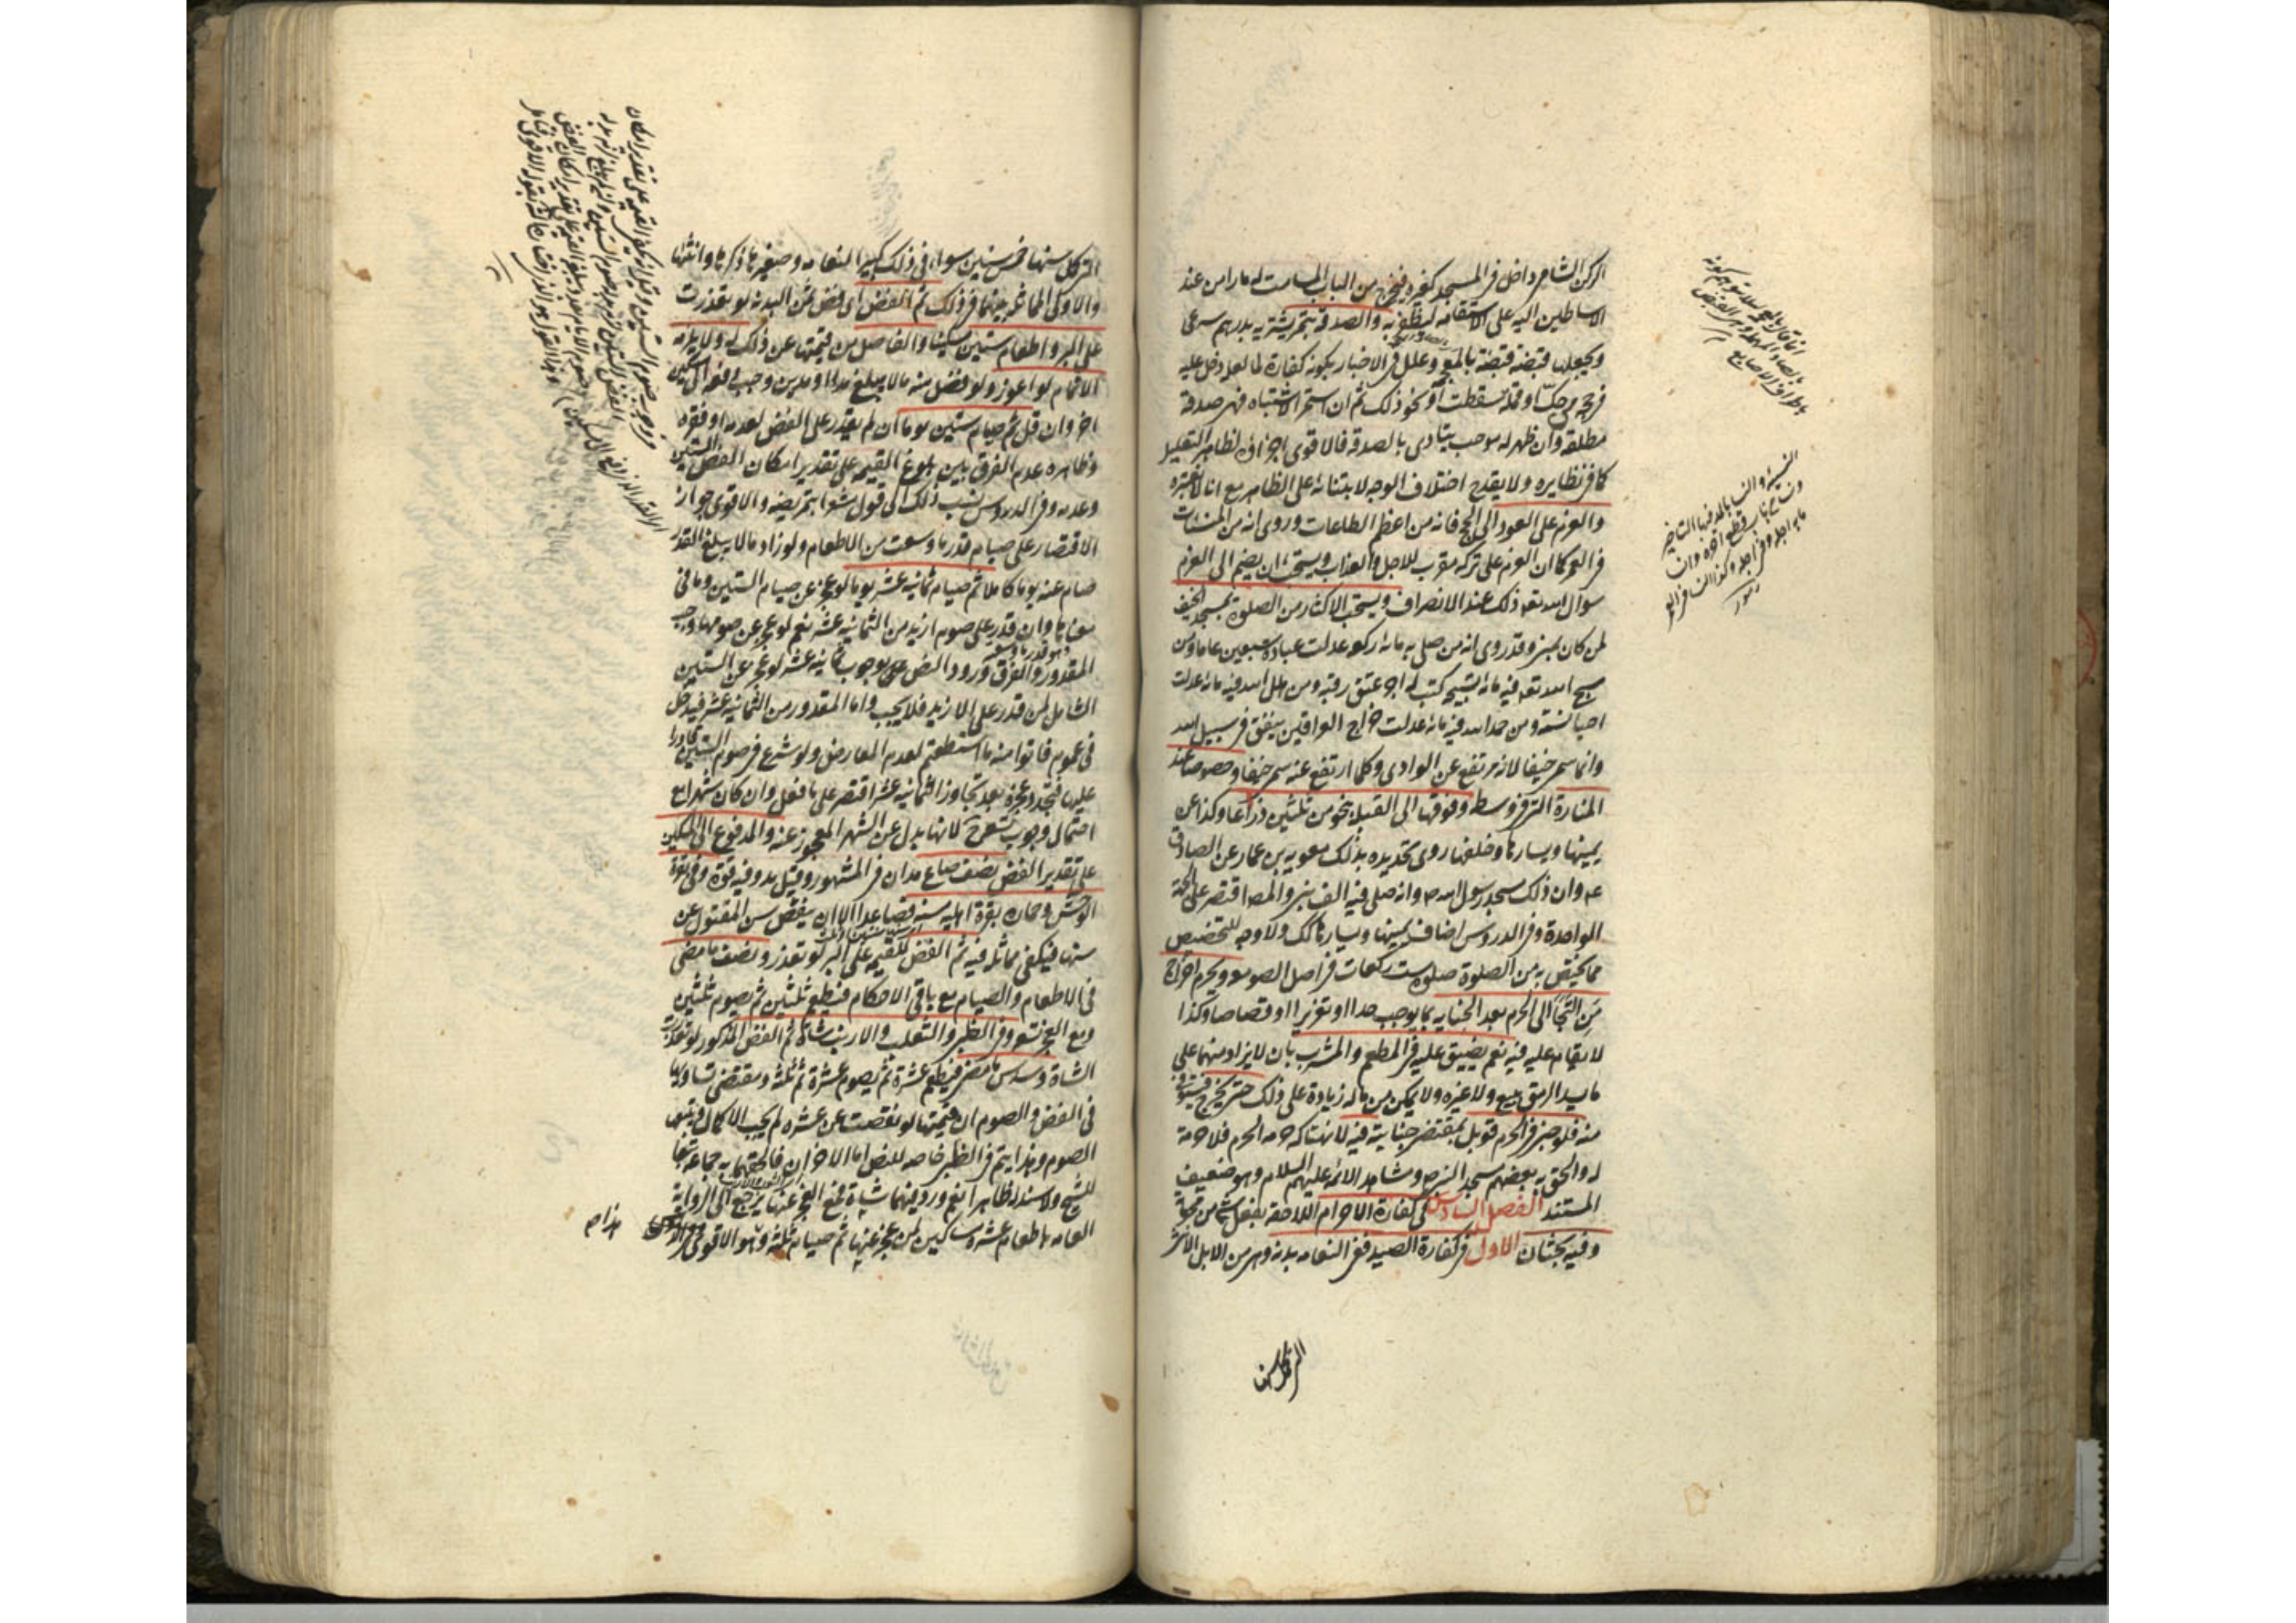 الركن الشامي داخل في المسجد كغيره فيخرج من الباب المسامت له مارا من عند
الاساطين اليه على الاستقامة ليظفر به والصدقة بتمر يشتريه بدرهم شرعي
ويجعلها قبضة قبضة بالمعج وعلل في الاخبار بكونه كفارة لما لعله دخل عليه
في حجه من حك او قملة سقطت او نحو ذلك ثم ان استمر الاشتباه فهي صدقة
مطلقة وان ظهر له موجب يتادى بالصدقة فالاقوى اجزاؤه لظاهر التعليل
كما في نظايره ولا يقدح اختلاف الوجه لابتنائه على الظاهر مع انا لا نعتبره
والعزم على العود الى الحج فانه من اعظم الطاعات وروي انه من المنسئات
في العمر كما ان العزم على تركه مقرب للاجل والعذاب ويستحب ان يضم الى العزم
سؤال الله تعه ذلك عند الانصراف ويستحب الاكثار من الصلوة بمسجد الخيف
لمن كان بمنى وقد روى انه من صلى به مائة ركعة عدلت عبادة سبعين عاما ومن
سبح الله تعه فيه مائة تسبيحة كتب له اجر عتق رقبة ومن هلل الله فيه مائة عدلت
احيا نسمة ومن حمد الله فيه مائة عدلت خراج العراقين ينفق في سبيل الله
وانما سمي خيفا لانه مرتفع عن الوادي وكلما ارتفع عنه سمي خيفا وخصوصا عند
المنارة التي في وسطه وفوقها الى القبلة بنحو من ثلثين ذراعا وكذا عن
يمينها ويسارها وخلفها روى تحديده بذلك معوية بن عمار عن الصادق
عه وان ذلك مسجد رسول الله ص وانه صلى فيه الف نبي والمصـ اقتصر على الجهة
الواحدة وفي الدروس اضاف يمينها ويسارها كك ولا وجه للتخصيص
مما يختص به من الصلوة صلوة ست ركعات في اصل الصومعة ويحرم اخراج
من التجأ الى الحرم بعد الجناية بما يوجب حدا او تعزيرا او قصاصا وكذا
لا يقام عليه فيه نعم يضيق عليه في المطعم والمشرب بان لا يزاد منهما على
ما يسد الرمق ببيع ولا غيره ولا يمكن من ماله زيادة على ذلك حتى يخرج فيستوفى
منه فلو جنى في الحرم قوبل بمقتضى جنايته فيه لانتهاكه حرمة الحرم فلا حرمة
له والحق به بعضهم مسجد النبي ص ومشاهد الائمة عليهم السلام وهو ضعيف
المستند الفصل السادس في كفارة الاحرام اللاحقة بفعل شئ من محرماته
وفيه بحثان الاول في كفارة الصيد ففي النعامة بدنة وهي من الابل الانثى
التي كمل سنها
التي كمل سنها خمس سنين سواء في ذلك كبير النعامة وصغيرها ذكرها وانثاها
والاولى المماثلة بينهما في ذلك ثم الفض اي فض ثمن البدنة لو تعذرت
على البر واطعام ستين مسكينا والفاضل من قيمتها عن ذلك له ولا يلزمه
الاتمام لو اعوز ولو فضل منه ما لا يبلغ مدا او مدين وجب دفعه الى مسكين
اخر وان قل ثم صيام ستين يوما ان لم يقدر على الفض لعدمه او فقره
وظاهره عدم الفرق بين بلوغ القيمة على تقدير امكان الفض الستين
وعدمه وفي الدروس نسب ذلك الى قول مشعرا بتمريضه والاقوى جواز
الاقتصار على صيام قدر ما وسعت من الاطعام ولو زاد ما لا يبلغ القدر
صام عنه يوما كاملا ثم صيام ثمانية عشر يوما لو عجز عن صيام الستين وما في
معناها وان قدر على صوم ازيد من الثمانية عشر نعم لو عجز عن صومها وجب
المقدور والفرق ورود النص على وجوب ثمانية عشر لو عجز عن الستين
الشامل لمن قدر على الازيد فلا يجب واما المقدور من الثمانية عشر فيدخل
في عموم فاتوا منه ما استطعتم لعدم المعارض ولو شرع في صوم الستين قادرا
عليها فتجدد عجزه بعد تجاوز الثمانية عشر اقتصر على ما فعل وان كان شهرا مع
احتمال وجوب تسعة ح لانها بدل عن الشهر المعجوز عنه والمدفوع الى المسكين
على تقدير الفض نصف صاع مدان في المشهور وقيل مد وفيه قوة وفي بقرة
الوحش وحماره بقرة اهلية مسنة فصاعدا الا ان ينقص سن المقتول عن
سنها فيكفي مماثله فيه ثم الفض للقيمة على البر لو تعذر ونصف ما مضى
في الاطعام والصيام مع باقي الاحكام فيطعم ثلثين ثم يصوم ثلثين
ومع العجز تسعة وفي الظبي والثعلب والارنب شاة ثم الفض المذكور لو تعذرت
الشاة وسدس ما مضى فيطعم عشرة ثم يصوم عشرة ثم ثلثة ومقتضى تساويها
في الفض والصوم ان قيمتها لو نقصت عن عشرة لم يجب الاكمال ويتبعها
الصوم وهذا يتم في الظبي خاصة للنص اما الاخران فالحقهما به جماعة تبعا
للشيخ ولا سند له ظاهرا نعم ورد فيهما شاة فمع العجز عنها يرجع الى الرواية
العامة باطعام عشرة مساكين لمن عجز عنها ثم صيام ثلثة وهو الاقوى وفي الدروس